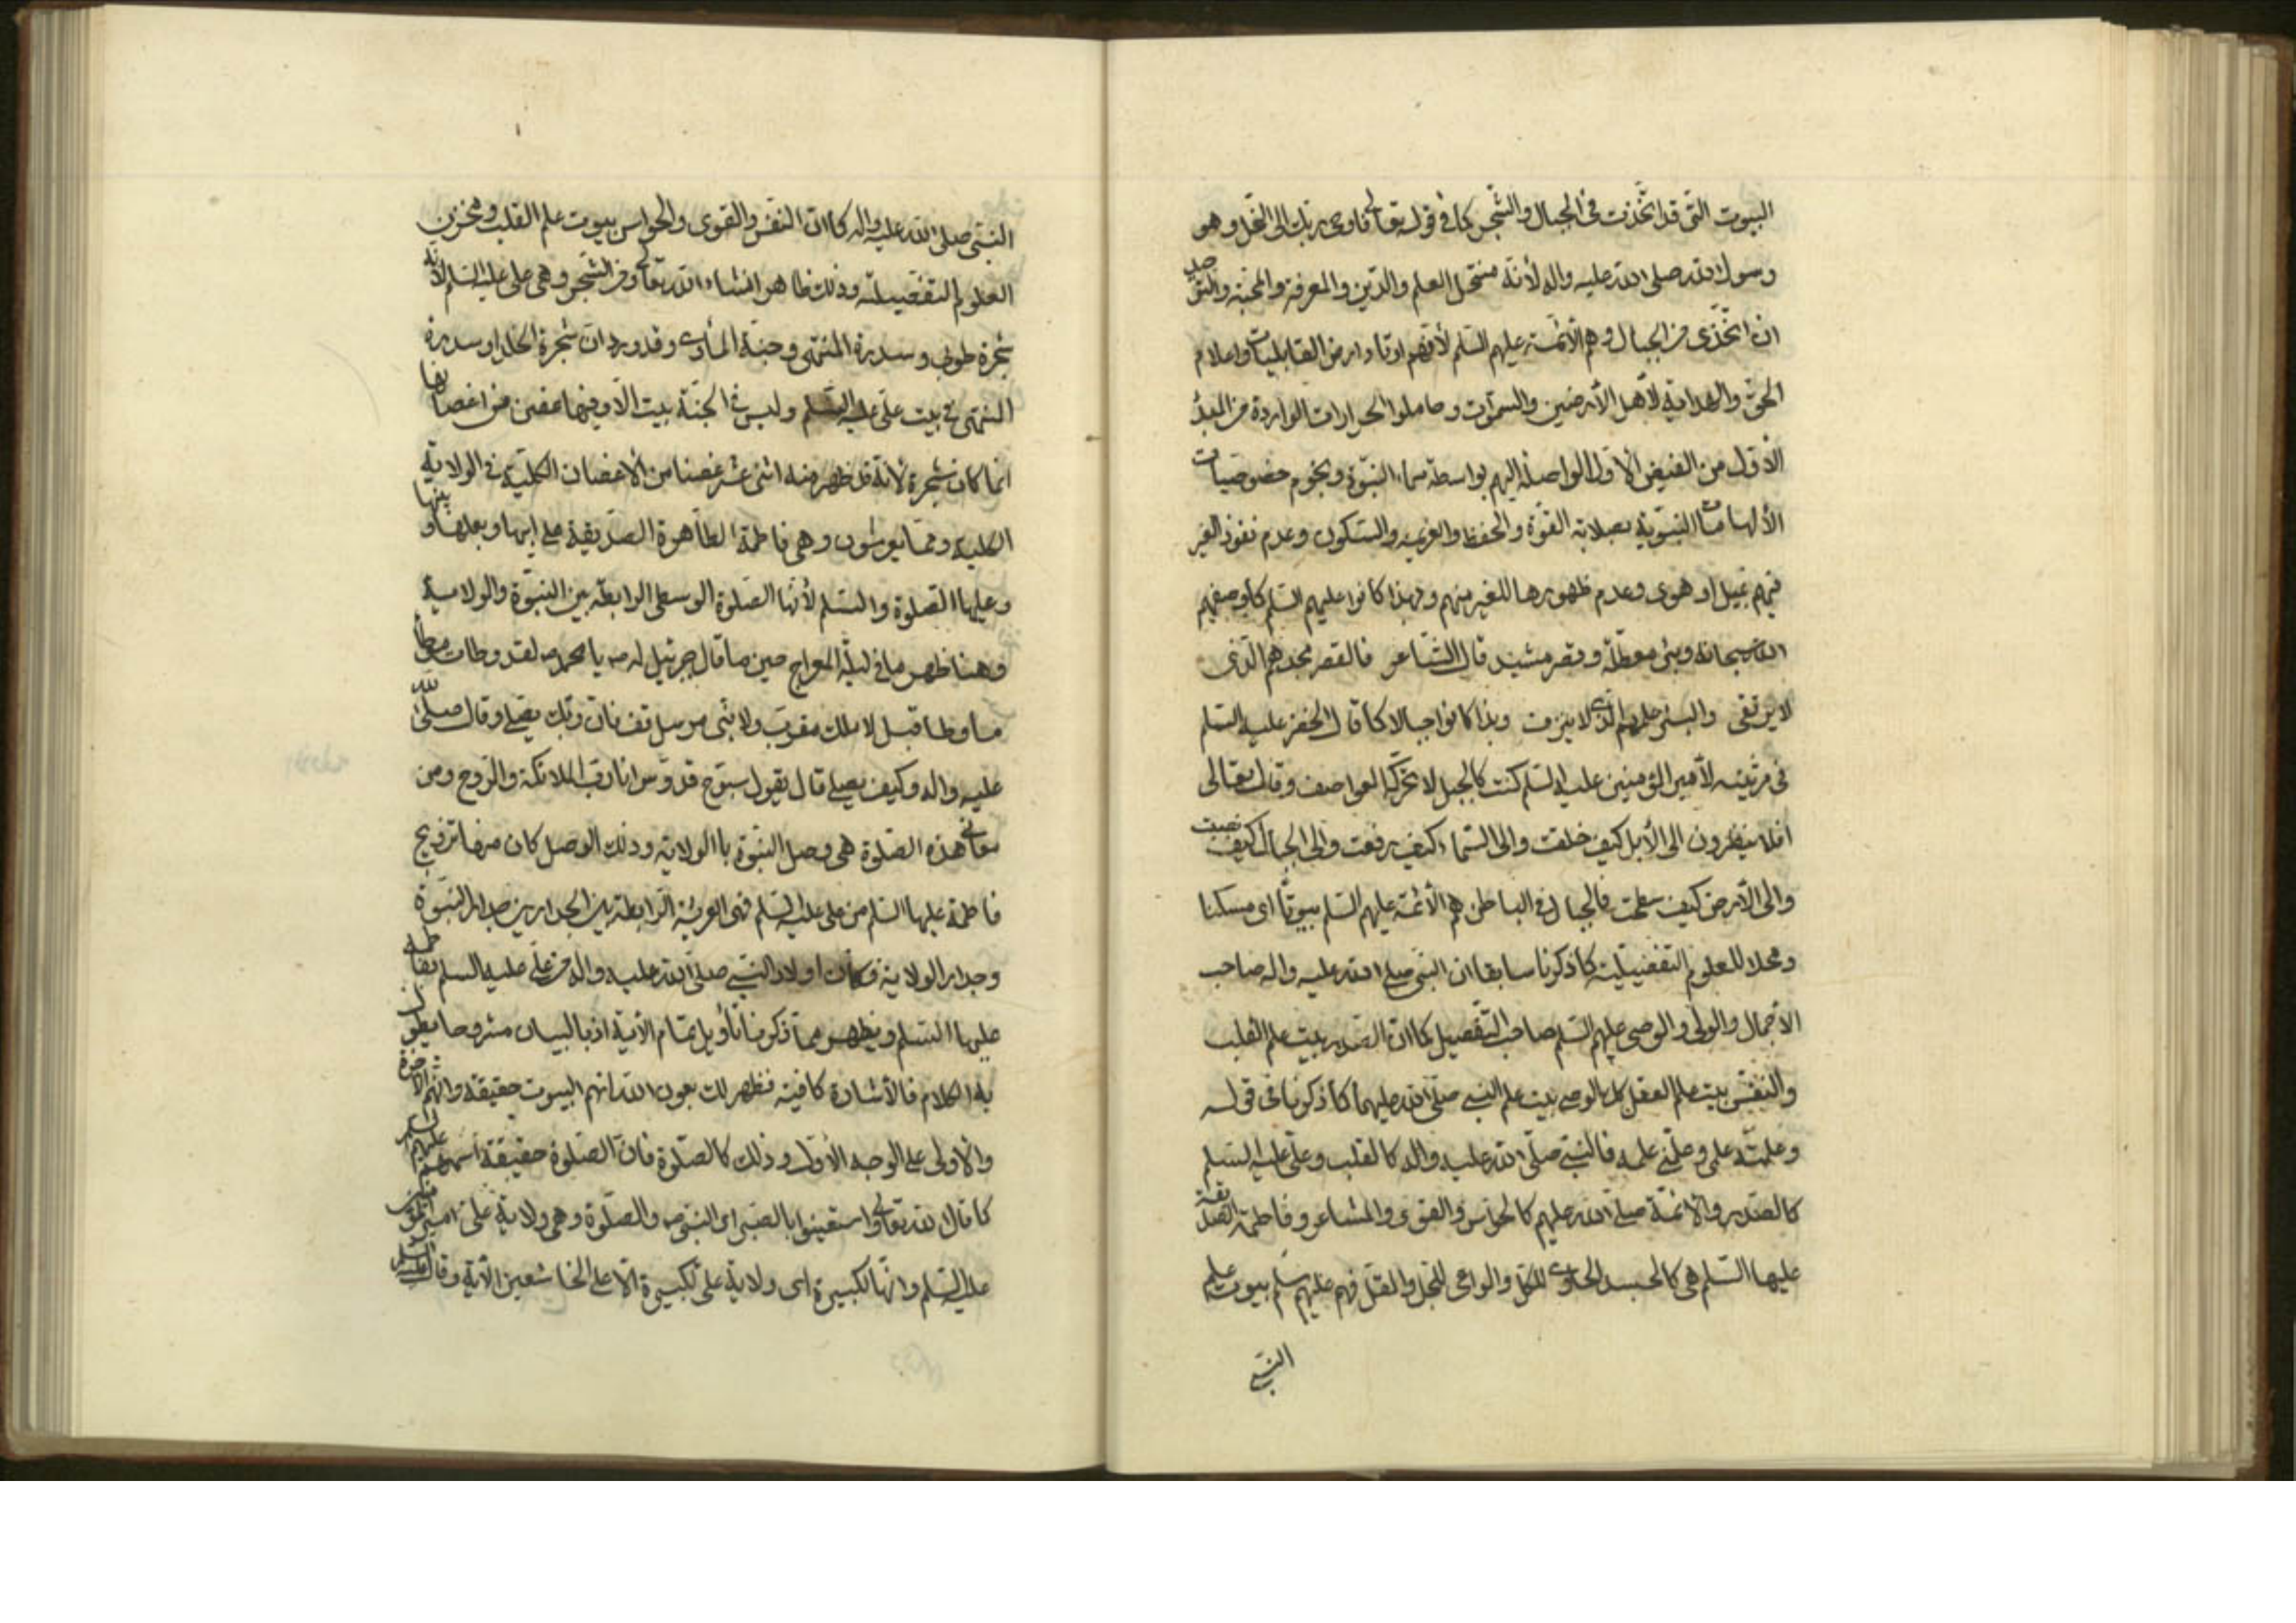 البيوت التى قد اتخذت فى الجبال والشجر كما فى قوله تعالى فاوحى ربك الى النحل وهو
رسول الله صلى الله عليه واله لأنه منتحل العلم والدين والمعرفة والمحبة والتوحيد
ان اتخذى من الجبال وهم الأئمة عليهم السلم لأنهم اوتاد ارض القابليات واعلام
الحق والهداية لأهل الأرضين والسموات وحاملوا الحرارات الواردة من المبدأ
الأول من الفيض الأول الواصلة اليهم بواسطة سماء النبوة ونجوم خصوصيات
الألهامات النبوية بصلابة القوة والحفظ والعزيمة والسكون وعدم نفوذ الغير
فيهم بميل او هوى وعدم ظهورها للغير منهم ولهذا كانوا عليهم السلم كما وصفهم
الله سبحانه وبئر معطلة وقصر مشيد قال الشاعر فالقصر مجدهم الذى
لا يرتقى والبئر علمهم الذى لا ينزف ولذا كانوا جبالا كما قال الخضر عليه السلم
فى مرثيته لأمير المؤمنين عليه السلم كنت كالجبل لا تحركه العواصف وقال تعالى
افلا ينظرون الى الأبل كيف خلقت والى السماء كيف رفعت والى الجبال كيف نصبت
والى الأرض كيف سطحت فالجبال فى الباطن هم الأئمة عليهم السلم بيوتا اى مسكنا
ومحلا للعلوم التفصيلية كما ذكرنا سابقا ان النبى صلى الله عليه واله صاحب
الأجمال والولى والوصى عليهم السلم صاحب التفصيل كما ان الصدر بيت علم القلب
والنفس بيت علم العقل كذلك الوصى بيت علم النبى صلى الله عليهما كما ذكرنا فى قوله
وعلمته علمى وعلمنى علمه فالنبى صلى الله عليه واله كالقلب وعلى عليه السلم
كالصدر والأئمة صلى الله عليهم كالحواس والقوى والمشاعر وفاطمة الصديقة
عليها السلم هى كالجسد الحاوى للكل والواعى للجل والقل فهم عليهم سلم بيوت علم
النبى
النبى صلى الله عليه واله كما ان النفس والقوى والحواس بيوت علم القلب ومخزن
العلوم التفصيلية وذلك ظاهر انشاء الله تعالى ومن الشجر وهى على عليه السلم لأنه
شجرة طوبى وسدرة المنتهى وجنة المأوى وقد ورد ان شجرة الخلد او سدرة
المنتهى فى بيت على عليه السلم وليس فى الجنة بيت الا وفيها غصن من اغصانها
انما كان شجرة لأنه قد ظهر منه اثنى عشر غصنا من الأغصان الكلية فى الولاية
الكلية ومما يعرشون وهى فاطمة الطاهرة الصديقة على ابيها وبعلها وبنيها
وعليها الصلوة والسلم لأنها الصلوة الوسطى الرابطة بين النبوة والولاية
وهنا ظهر ما فى ليلة المعراج حين ما قال جبرئيل له ص يا محمد ص لقد وطات موطأ
ما وطأ قبل لا ملك مقرب ولا نبى مرسل قف فان ربك يصلى وقال صلى الله
عليه واله وكيف يصلى قال يقول سبوح قدوس انا رب الملائكة والروح ومن
معانى هذه الصلوة هى وصل النبوة بالولاية وذلك الوصل كان منها تزويج
فاطمة عليها السلم من على عليه السلم فهى العريشة الرابطة بين الجدارين جدار النبوة
وجدار الولاية فكان اولاد النبى صلى الله عليه واله من على عليه السلم بفاطمة
عليها السلم ويظهر مما ذكرنا تأويل تمام الأية اذ بالبيان مشروحا يطول
به الكلام فالأشارة كافية فظهر لك بعون الله انهم البيوت حقيقة والثمرة
والأولى على الوجه الأول وذلك كالصلوة فان الصلوة حقيقة اسمهم عليهم السلم
كما قال الله تعالى واستعينوا بالصبر اى النبى ص والصلوة وهى ولاية على امير المؤمنين
عليه السلم وانها لكبيرة اى ولاية على لكبيرة الا على الخاشعين الأية وقال عليه السلم